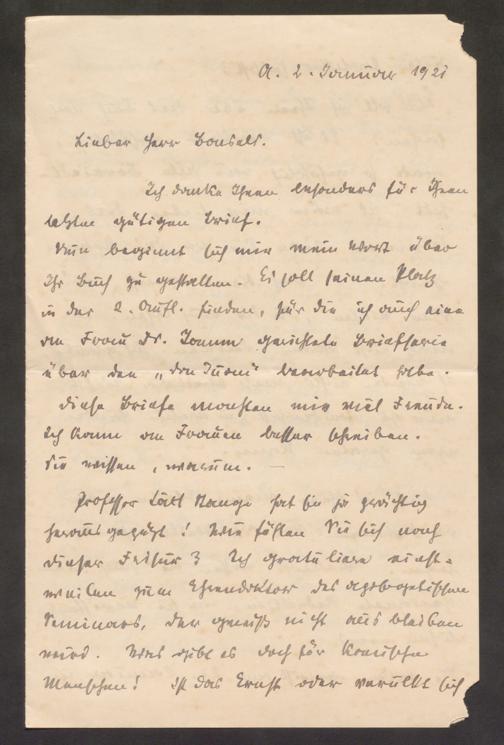 A. 2. Januar 1921
Lieber Herr Bonsels.
Ich danke Ihnen besonders für Ihren
letzten gütigen Brief.
Nun beginnt sich mir mein Wort über
Ihr Buch zu gestalten. Es soll seinen Platz
in der 2. Aufl. finden, für die ich auch eine
an Frau Dr. gerichtete Briefserie
über den „Don Juan" bearbeitet habe.
Diese Briefe machten mir viel Freude.
Ich kann an Frauen besser schreiben.
Sie wissen, warum. —
Professor hat Sie ja
herausgeputzt! Wie fühlen Sie sich nach
dieser Frisur? Ich gratuliere einst-
weilen zum Ehrendoktor des
Seminars, der gewiß nicht ausbleiben
wird. Was gibt es doch für komische
Menschen! Ist das Ernst oder verulkt sich